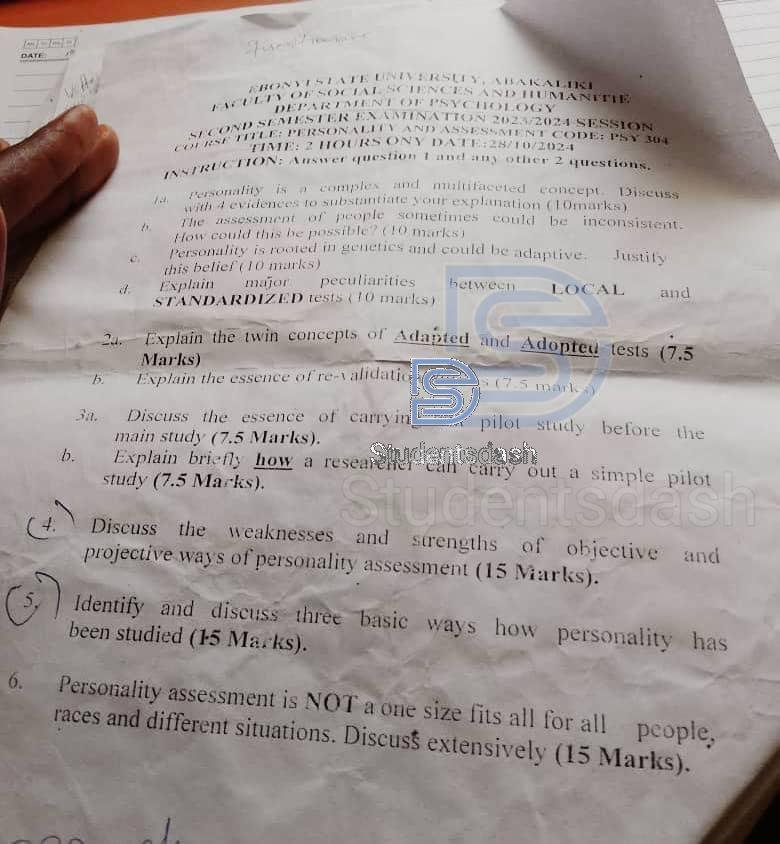 DATE:
EBONYI STATE UNIVERSITY, ABAKALIKI
FACULTY OF SOCIAL SCIENCES AND HUMANITIE
DEPARTMENT OF PSYCHOLOGY
SECOND SEMESTER EXAMINATION 2023/2024 SESSION
COURSE TITLE: PERSONALITY AND ASSESSMENT CODE: PSY 304
TIME: 2 HOURS ONY DATE:28/10/2024
INSTRUCTION: Answer question 1 and any other 2 questions.
1a. Personality is a complex and multifaceted concept. Discuss
with 4 evidences to substantiate your explanation (10marks)
b. The assessment of people sometimes could be inconsistent.
How could this be possible? (10 marks)
c. Personality is rooted in genetics and could be adaptive. Justify
this belief (10 marks)
d. Explain major peculiarities between LOCAL and
STANDARDIZED tests (10 marks)
2a. Explain the twin concepts of Adapted and Adopted tests (7.5
Marks)
b. Explain the essence of re-validatio s (7.5 marks)
3a. Discuss the essence of carryin pilot study before the
main study (7.5 Marks).
b. Explain briefly how a researcher can carry out a simple pilot
study (7.5 Marks).
Studentsdash
Studentsdash
4. Discuss the weaknesses and strengths of objective and
projective ways of personality assessment (15 Marks).
5. Identify and discuss three basic ways how personality has
been studied (15 Marks).
6. Personality assessment is NOT a one size fits all for all people,
races and different situations. Discuss extensively (15 Marks).